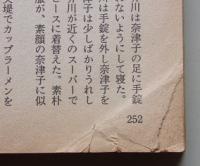 川は奈津子の足に手錠
ないようにして寝た。
は手錠を外し奈津子を
津子は少しばかりうれし
井川が近くのスーパーで
ピースに着替えた。素朴
服が、素顔の奈津子に似
堤でカップラーメンを
252